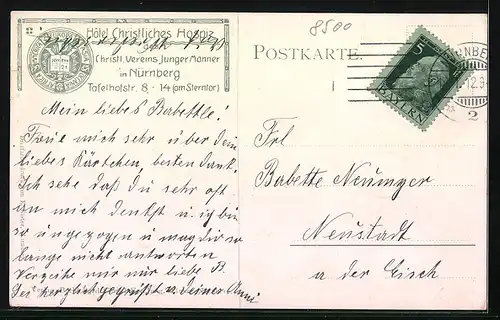 8500
Hôtel Christliches Hospiz
Christl. Vereins Junger Männer
in Nürnberg
Tafelhofstr. 8-14 (am Sterntor)
POSTKARTE.
5
BAYERN
NÜRNBE
2
Mein liebes Babettle!
Freue mich sehr über Dein
liebes Kärtchen besten Dank.
Ich sehe daß Du sehr oft
an mich denkst u. ich bin
so ungezogen u mag Dir so
lange nicht antworten
Verzeihe mir nur liebe B.
Sei herzlich gegrüßt v. Deiner Anni
Frl
Babette Neumeyer
Neustadt
a der Eisch